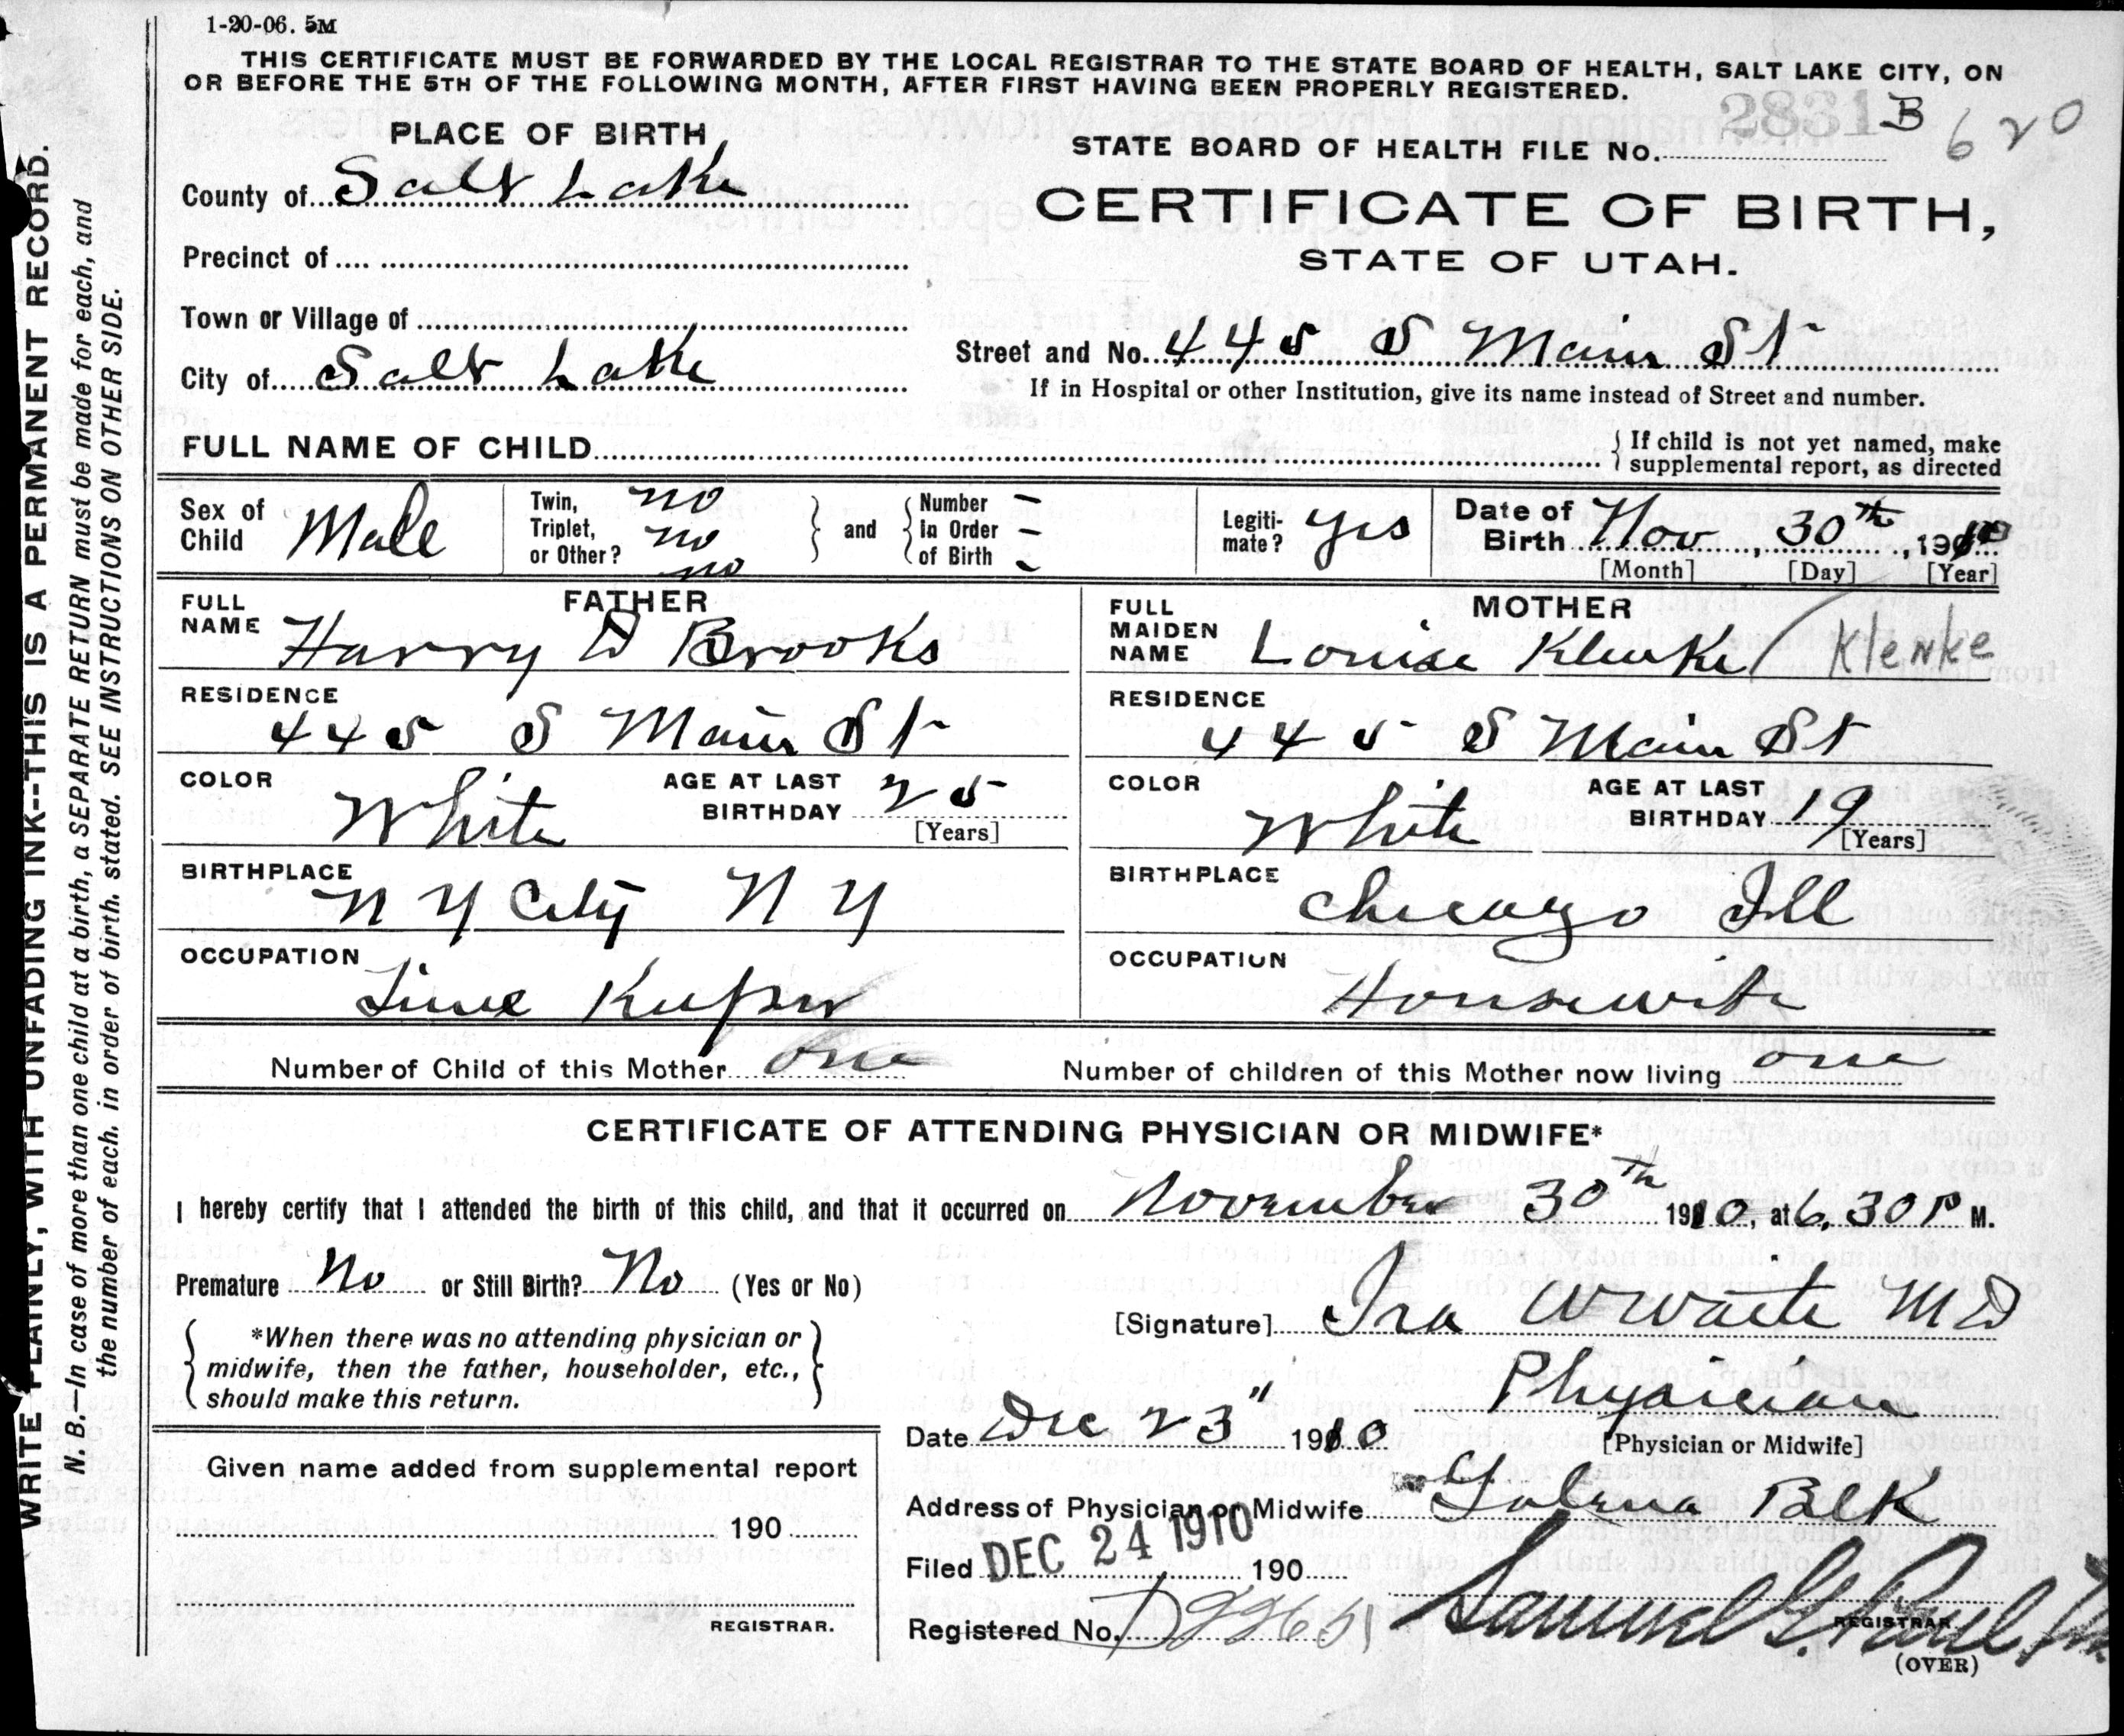 1-20-06. 5M
THIS CERTIFICATE MUST BE FORWARDED BY THE LOCAL REGISTRAR TO THE STATE BOARD OF HEALTH, SALT LAKE CITY, ON
OR BEFORE THE 5TH OF THE FOLLOWING MONTH, AFTER FIRST HAVING BEEN PROPERLY REGISTERED.
WRITE PLAINLY, WITH UNFADING INK--THIS IS A PERMANENT RECORD.
N. B.—In case of more than one child at a birth, a SEPARATE RETURN must be made for each, and
the number of each, in order of birth, stated. SEE INSTRUCTIONS ON OTHER SIDE.
PLACE OF BIRTH
2831 B 620
STATE BOARD OF HEALTH FILE No.
County of Salt Lake
CERTIFICATE OF BIRTH,
STATE OF UTAH.
Precinct of
Town or Village of
City of Salt Lake
Street and No. 445 S Main St
If in Hospital or other Institution, give its name instead of Street and number.
FULL NAME OF CHILD
If child is not yet named, make
supplemental report, as directed
Sex of Child Male
Twin, no
Triplet, no
or Other? no
and
Number -
in Order -
of Birth -
Legiti-
mate? yes
Date of
Birth Nov, 30th, 1910
[Month] [Day] [Year]
FATHER
FULL NAME Harry D Brooks
MOTHER
FULL MAIDEN NAME Louise Klenke / Klenke
RESIDENCE 445 S Main St
RESIDENCE 445 S Main St
COLOR White
AGE AT LAST BIRTHDAY 25 [Years]
COLOR White
AGE AT LAST BIRTHDAY 19 [Years]
BIRTHPLACE N Y City N Y
BIRTHPLACE Chicago Ill
OCCUPATION Time Keeper
OCCUPATION Housewife
Number of Child of this Mother one
Number of children of this Mother now living one
CERTIFICATE OF ATTENDING PHYSICIAN OR MIDWIFE*
I hereby certify that I attended the birth of this child, and that it occurred on November 30th 1910, at 6.30 P M.
Premature No or Still Birth? No (Yes or No)
[Signature] Ira W Waite M D
*When there was no attending physician or
midwife, then the father, householder, etc.,
should make this return.
Physician
[Physician or Midwife]
Date Dec 23" 1910
Given name added from supplemental report
190
REGISTRAR.
Address of Physician or Midwife Galena Blk
Filed DEC 24 1910 190
Registered No.
Samuel G. Paul
REGISTRAR
(OVER)